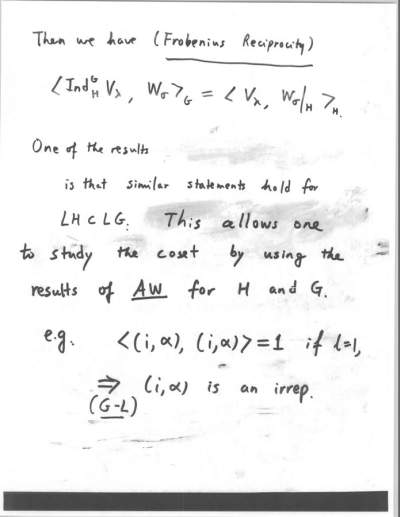 Then we have (Frobenius Reciprocity)
⟨Ind_H^G V_λ, W_σ⟩_G = ⟨V_λ, W_σ|_H⟩_H.
One of the results
is that similar statements hold for
LH ⊂ LG. This allows one
to study the coset by using the
results of AW for H and G.
e.g. <(i,α), (i,α)> = 1 if l=1,
⇒ (i,α) is an irrep.
(G-L)